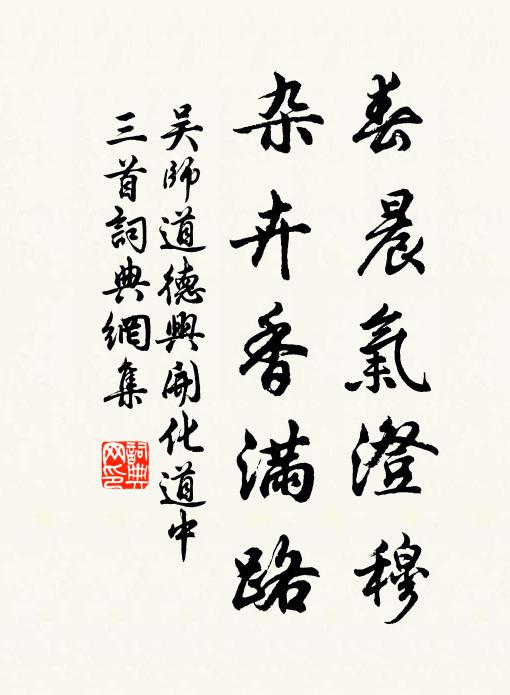 春晨氣澄穆
杂卉香滿路
吴師道德興開化道中
三首詞典網集
詞典网印